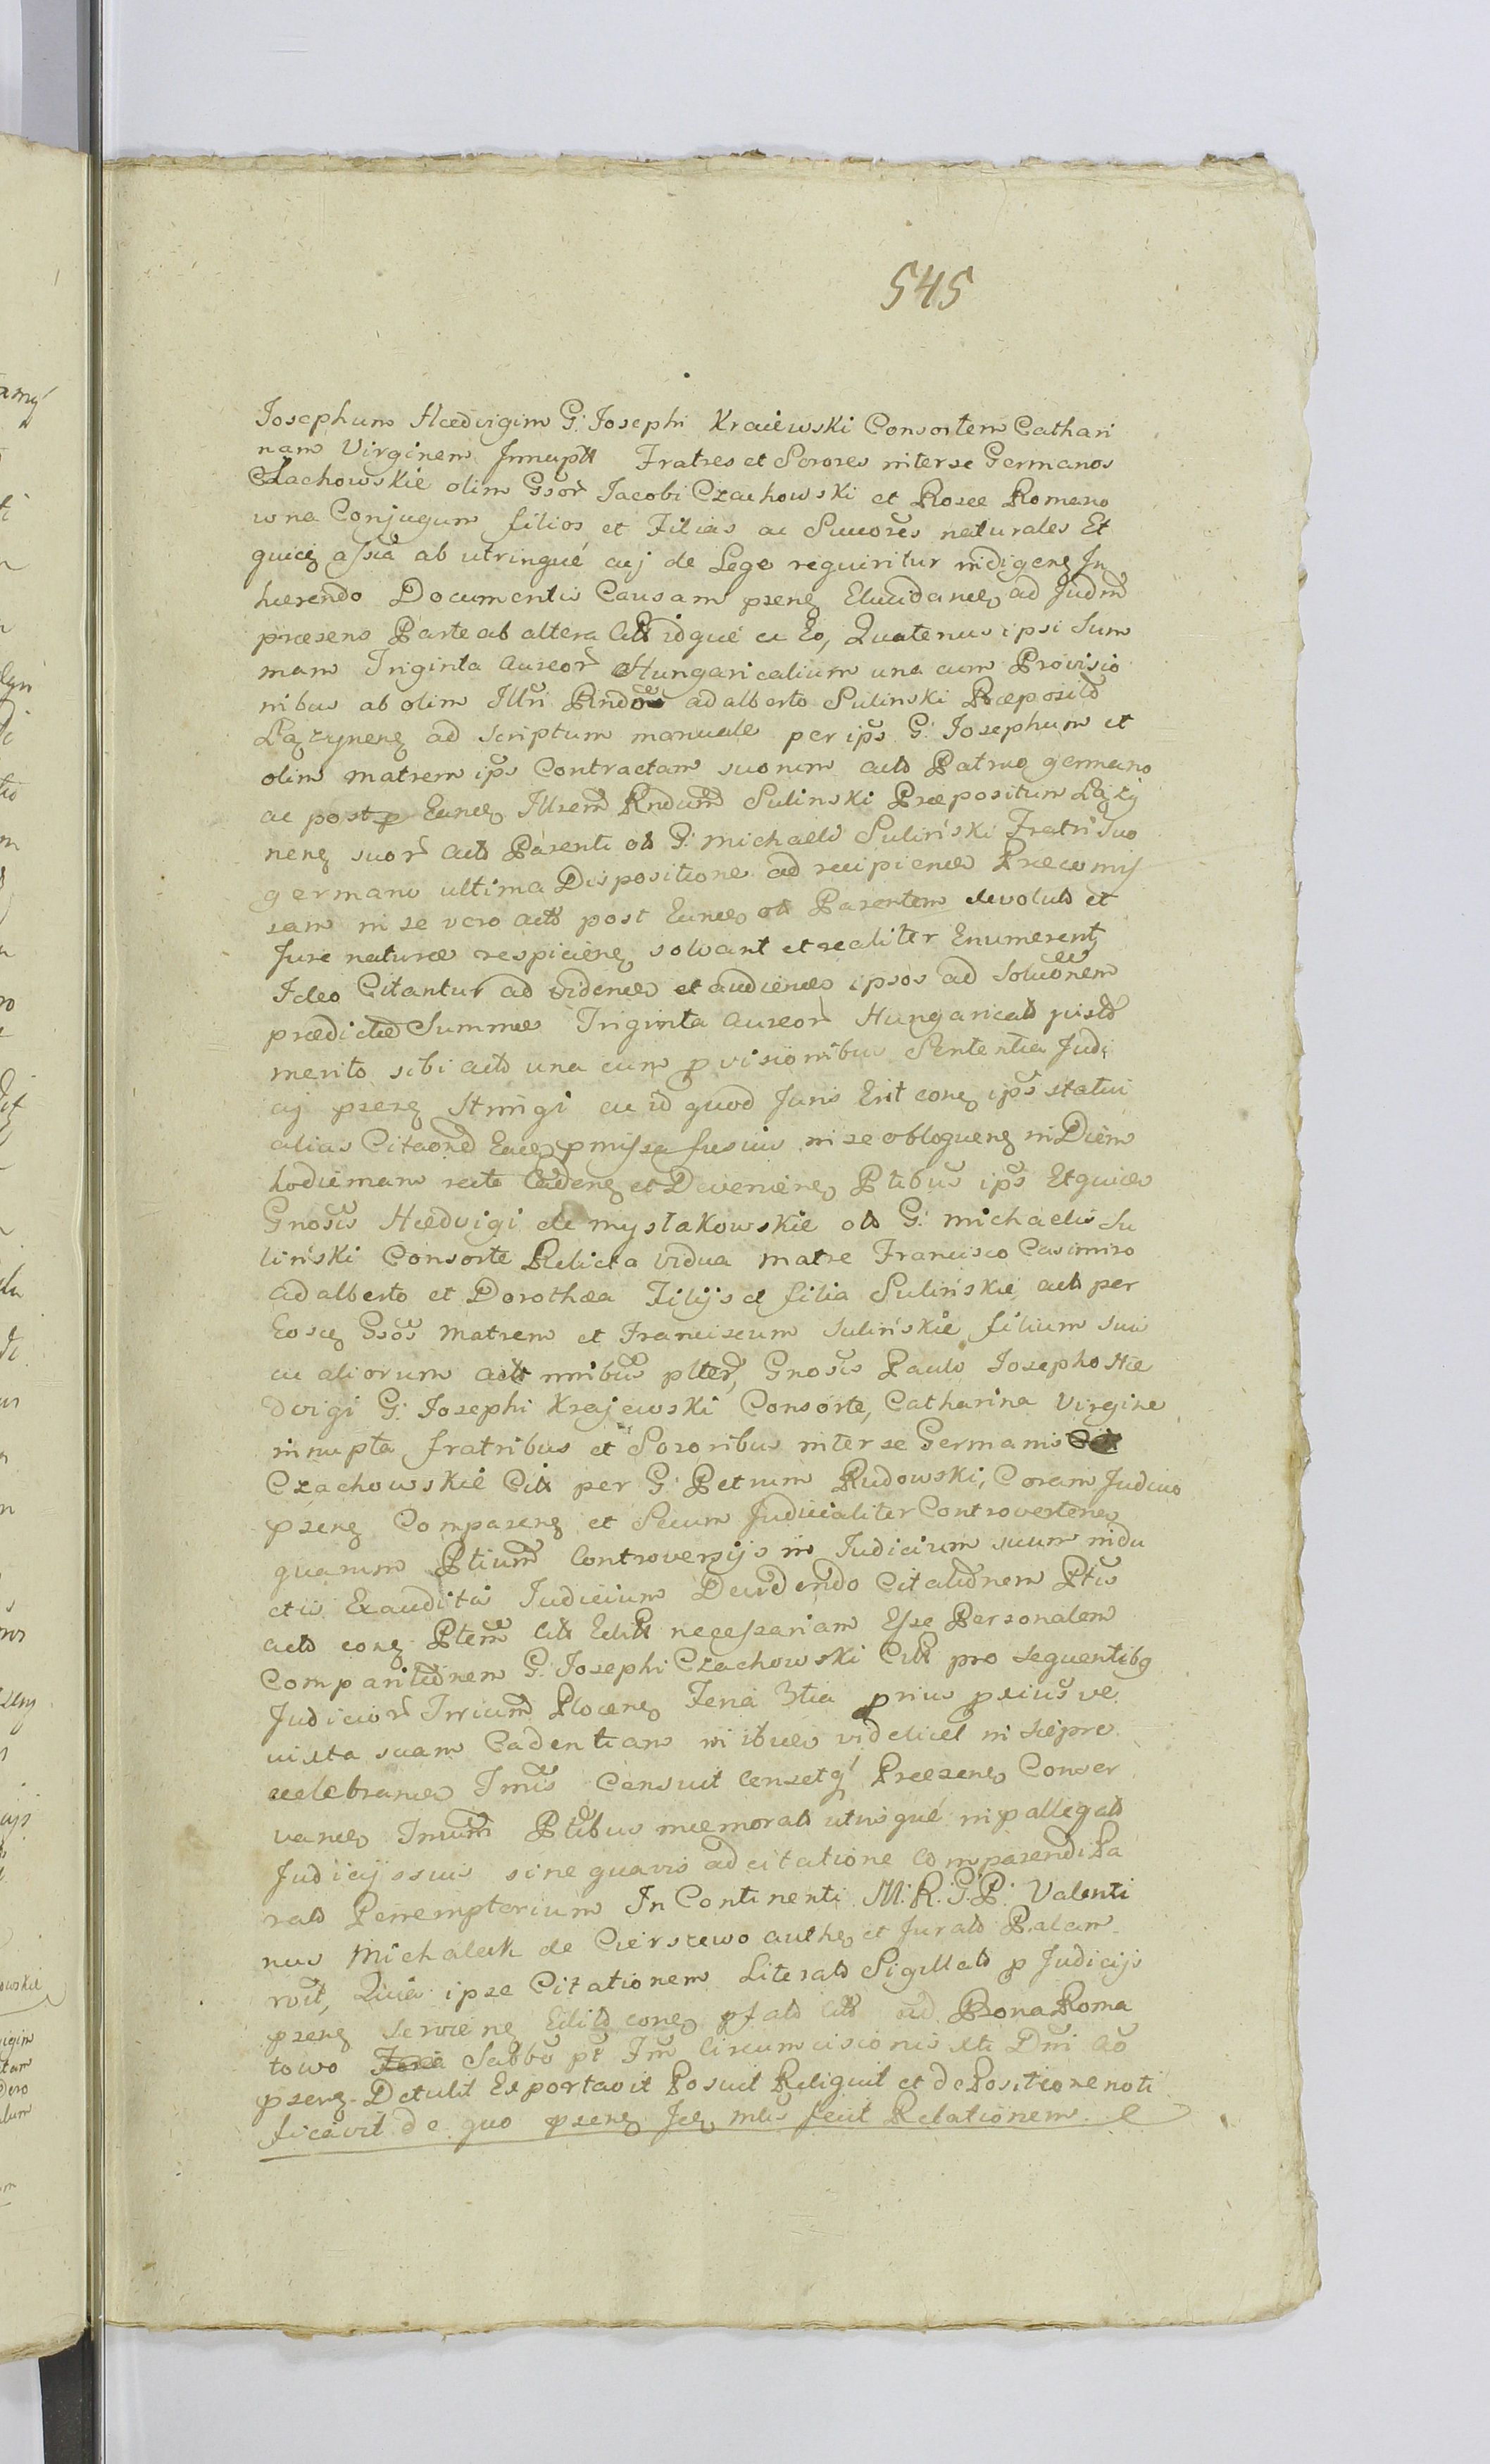 545
Josephum Hædvigim G: Josephi Kraiewski Consortem Cathari
nam Virginem Innupt Fratres et Sorores inter se Germanos
Czachowskie olim Gsor Jacobi Czachowski et Rosæ Romano
wna Conjugum filios et Filias ac Succores naturales Et
quicq assiâ ab utringué cuj de Lege requiritur indigenz In
hærendo Documentis Causam psenz Elucidance ad Judm
præsens Parte ab altera Citt idqué a Eo, Quatenus ipsi Sum
mam Triginta aureor Hungaricalium una cum Provisio
nibus ab olim Illri Rndo adalberto Sulinski Præposito
Łązynenz ad scriptum manuale per ips G: Josephum et
olim matrem ips Contractam suorum acto Patruo germano
ac post Eunce Illrem Rndum Sulinski Præpositum Łązy
nenz suor acto Parenti ol G: michaeli Suliński Fratri Suo
germano ultima Dispositione ad recipience Præcomis
sam in se vero acto post Eunce ol Parentem devolut et
Jure naturæ respicienz solvant et realiter Enumerent
Ideo Citantur ad vidence et audience ipsos ad Soluonem
prædictæ Summæ Triginta aureor Hungarical justo
merito sibi acto una cum pvisionibus Sententia Judi
cij psenz stringi ac id quod Juris Erit conz ips statui
alias Citaone Eace pmissa fusius in se obloquenz in Diem
hodiernam recte Cadenz et Devenienz Ptibus ips Et quice
Gnosis Hædvigi de mysłakowskie ol G: michaelis Su
liński Consorte Relicta vidua matre Francisco Casimiro
adalberto et Dorothæa Filijs et filia Sulińskie acto per
Eosce Gsos matrem et Franciscum Sulińskie filium suo
ac aliorum acto nnibus plter, Gnosis Paulo Josepho Hæ
dvigi G: Josephi Krajewski Consorte, Catharina Virgine
innupta fratribus et Sororibus inter se Germanis
Czachowskie Citt per G: Petrum Rudowski, Coram Judicio
psenz Comparenz et Secum Judicialiter Controvertenz
quarum Ptium Controversijs in Judicium suum indu
ctis Exauditis Judicium Decidendo Citationem Ptis
acto conz Ptem Citt Edit necessariam Esse Personalem
Comparitionem G: Josephi Czachowski Citt pro sequentibq
Judicior Trrium Plocenz Feria 3tia prius pxius ve
iuxta suam Cadentiam in ibuce videlicet in Siepre
celebrance Tmis Censuit Censetq Præsenz Conser
vance Tmum Ptibus memorat utrisqué in pallegat
Judicijs suis sine quavis adcitatione Comparendi Pa
rato Perremptorium In Continenti M: R: G: P: Valenti
nus Michałek de Cierszewo authe et Jurato Palam
rvit, Quia ipse Citationem Literato Sigillato p Judicijs
psenz servienz Edito conz pfato Citt ad Bona Roma
towo Sabbo pt Fm Circumcisionis Xti Dni Ao
psenz Detulit Exportavit Posuit Reliquit et de Positione noti
ficavit de quo psenz Jcq mlis fecit Relationem